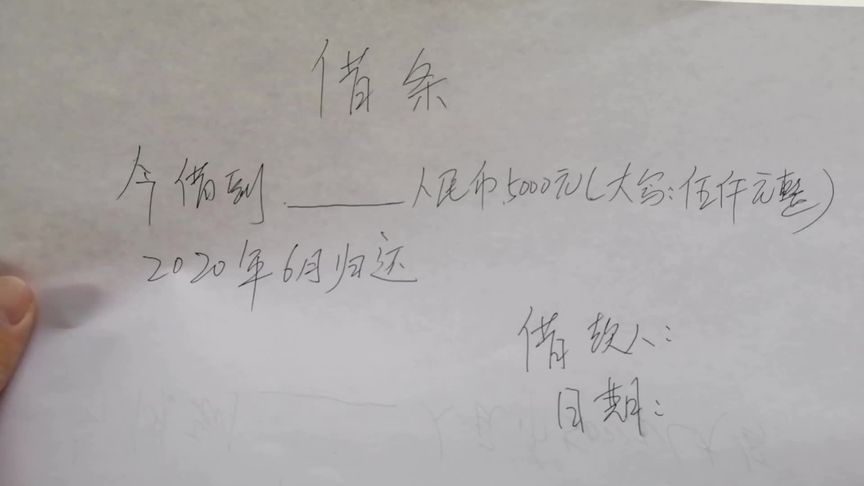 借条
今借到______人民币5000元(大写:伍仟元整)
2020年6月归还
借款人:
日期: